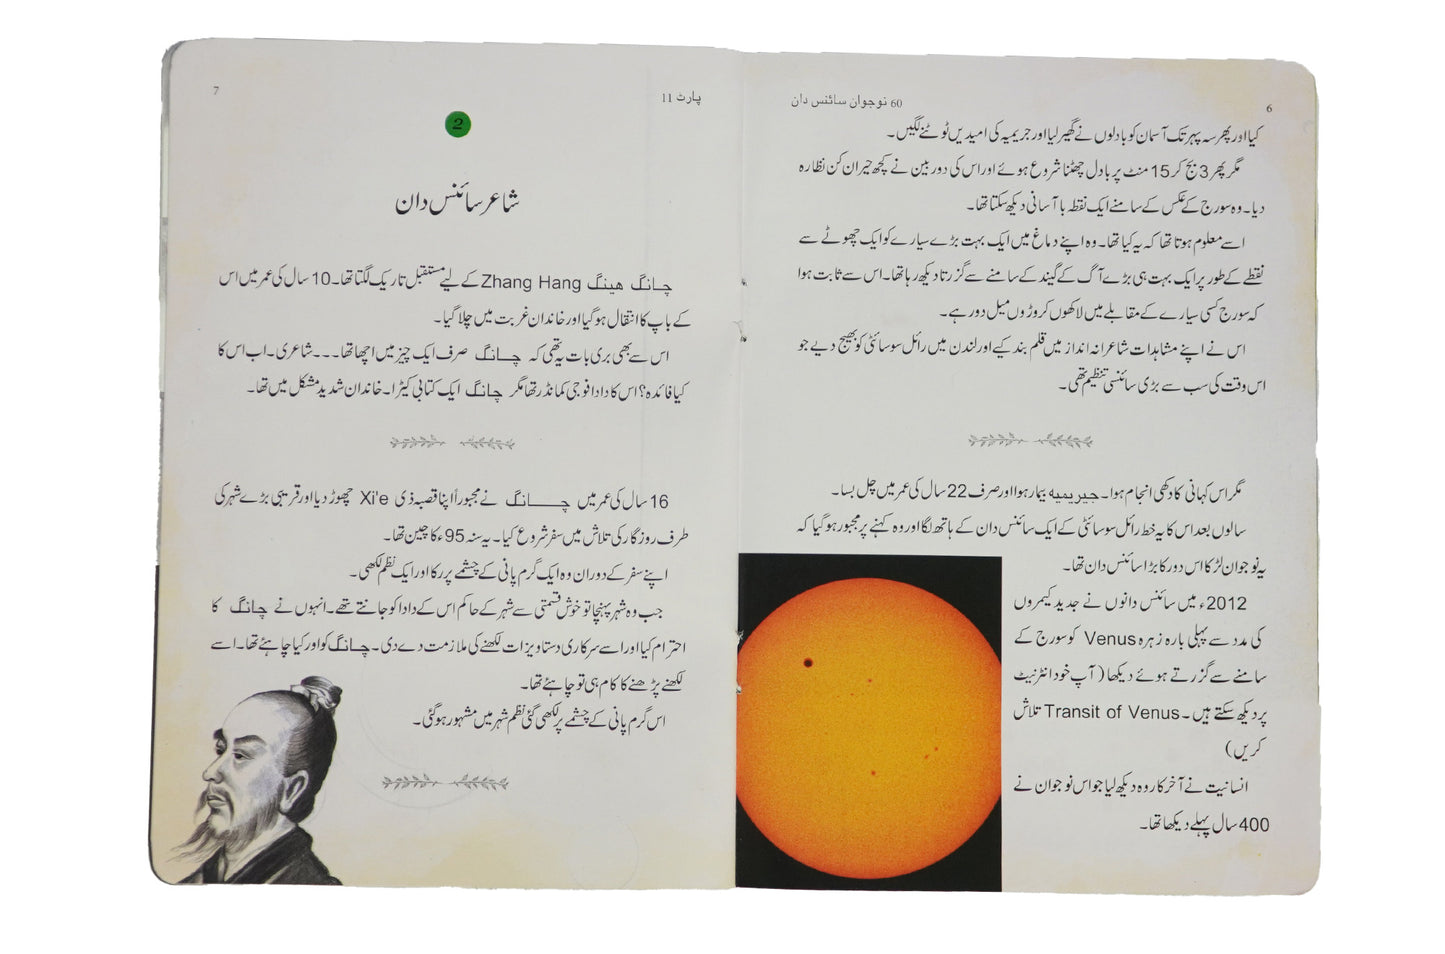 6
60 نوجوان سائنس دان
کیا اور پھر سہ پہر تک آسمان کو بادلوں نے گھیر لیا اور جریمیہ کی امیدیں ٹوٹنے لگیں۔
مگر پھر 3 بج کر 15 منٹ پر بادل چھٹنا شروع ہوئے اور اس کی دوربین نے کچھ حیران کن نظارہ
دیا۔ وہ سورج کے عکس کے سامنے ایک نقطہ با آسانی دیکھ سکتا تھا۔
اسے معلوم ہوتا تھا کہ یہ کیا تھا۔ وہ اپنے دماغ میں ایک بہت بڑے سیارے کو ایک چھوٹے سے
نقطے کے طور پر ایک بہت ہی بڑے آگ کے گیند کے سامنے سے گزرتا دیکھ رہا تھا۔ اس سے ثابت ہوا
کہ سورج کسی سیارے کے مقابلے میں لاکھوں کروڑوں میل دور ہے۔
اس نے اپنے مشاہدات شاعرانہ انداز میں قلم بند کیے اور لندن میں رائل سوسائٹی کو بھیج دیے جو
اس وقت کی سب سے بڑی سائنسی تنظیم تھی۔
مگر اس کہانی کا دکھی انجام ہوا۔ جیریمیہ بیمار ہوا اور صرف 22 سال کی عمر میں چل بسا۔
سالوں بعد اس کا یہ خط رائل سوسائٹی کے ایک سائنس دان کے ہاتھ لگا اور وہ کہنے پر مجبور ہو گیا کہ
یہ نوجوان لڑکا اس دور کا بڑا سائنس دان تھا۔
2012ء میں سائنس دانوں نے جدید کیمروں
کی مدد سے پہلی بارہ زہرہ Venus کو سورج کے
سامنے سے گزرتے ہوئے دیکھا (آپ خود انٹرنیٹ
پر دیکھ سکتے ہیں۔ Transit of Venus تلاش
کریں)
انسانیت نے آخر کار وہ دیکھ لیا جو اس نوجوان نے
400 سال پہلے دیکھا تھا۔
پارٹ 11
7
2
شاعر سائنس دان
چانگ ھینگ Zhang Hang کے لیے مستقبل تاریک لگتا تھا۔ 10 سال کی عمر میں اس
کے باپ کا انتقال ہو گیا اور خاندان غربت میں چلا گیا۔
اس سے بھی بری بات یہ تھی کہ چانگ صرف ایک چیز میں اچھا تھا۔۔۔ شاعری۔ اب اس کا
کیا فائدہ؟ اس کا دادا فوجی کمانڈر تھا مگر چانگ ایک کتابی کیڑا۔ خاندان شدید مشکل میں تھا۔
16 سال کی عمر میں چانگ نے مجبوراً اپنا قصبہ ذی Xi'e چھوڑ دیا اور قریبی بڑے شہر کی
طرف روزگار کی تلاش میں سفر شروع کیا۔ یہ سنہ 95ء کا چین تھا۔
اپنے سفر کے دوران وہ ایک گرم پانی کے چشمے پر رکا اور ایک نظم لکھی۔
جب وہ شہر پہنچا تو خوش قسمتی سے شہر کے حاکم اس کے دادا کو جانتے تھے۔ انہوں نے چانگ کا
احترام کیا اور اسے سرکاری دستاویزات لکھنے کی ملازمت دے دی۔ چانگ کو اور کیا چاہئے تھا۔ اسے
لکھنے پڑھنے کا کام ہی تو چاہئے تھا۔
اس گرم پانی کے چشمے پر لکھی گئی نظم شہر میں مشہور ہو گئی۔